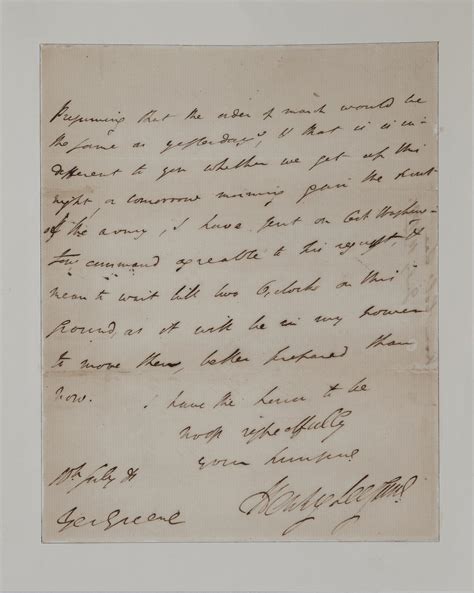 Presuming that the order of march would be
the same as yesterdays, & that it is in-
different to you whether we get up this
night or tomorrow morning
of the army, I have sent on Col Washing-
tons command agreable to his request, &
mean to wait till two Oclock on this
ground, as it will be in my power
to move then, better prepared than
now.
I have the honor to be
most respectfully
your
10th July 81
Gen Greene
Henry Lee